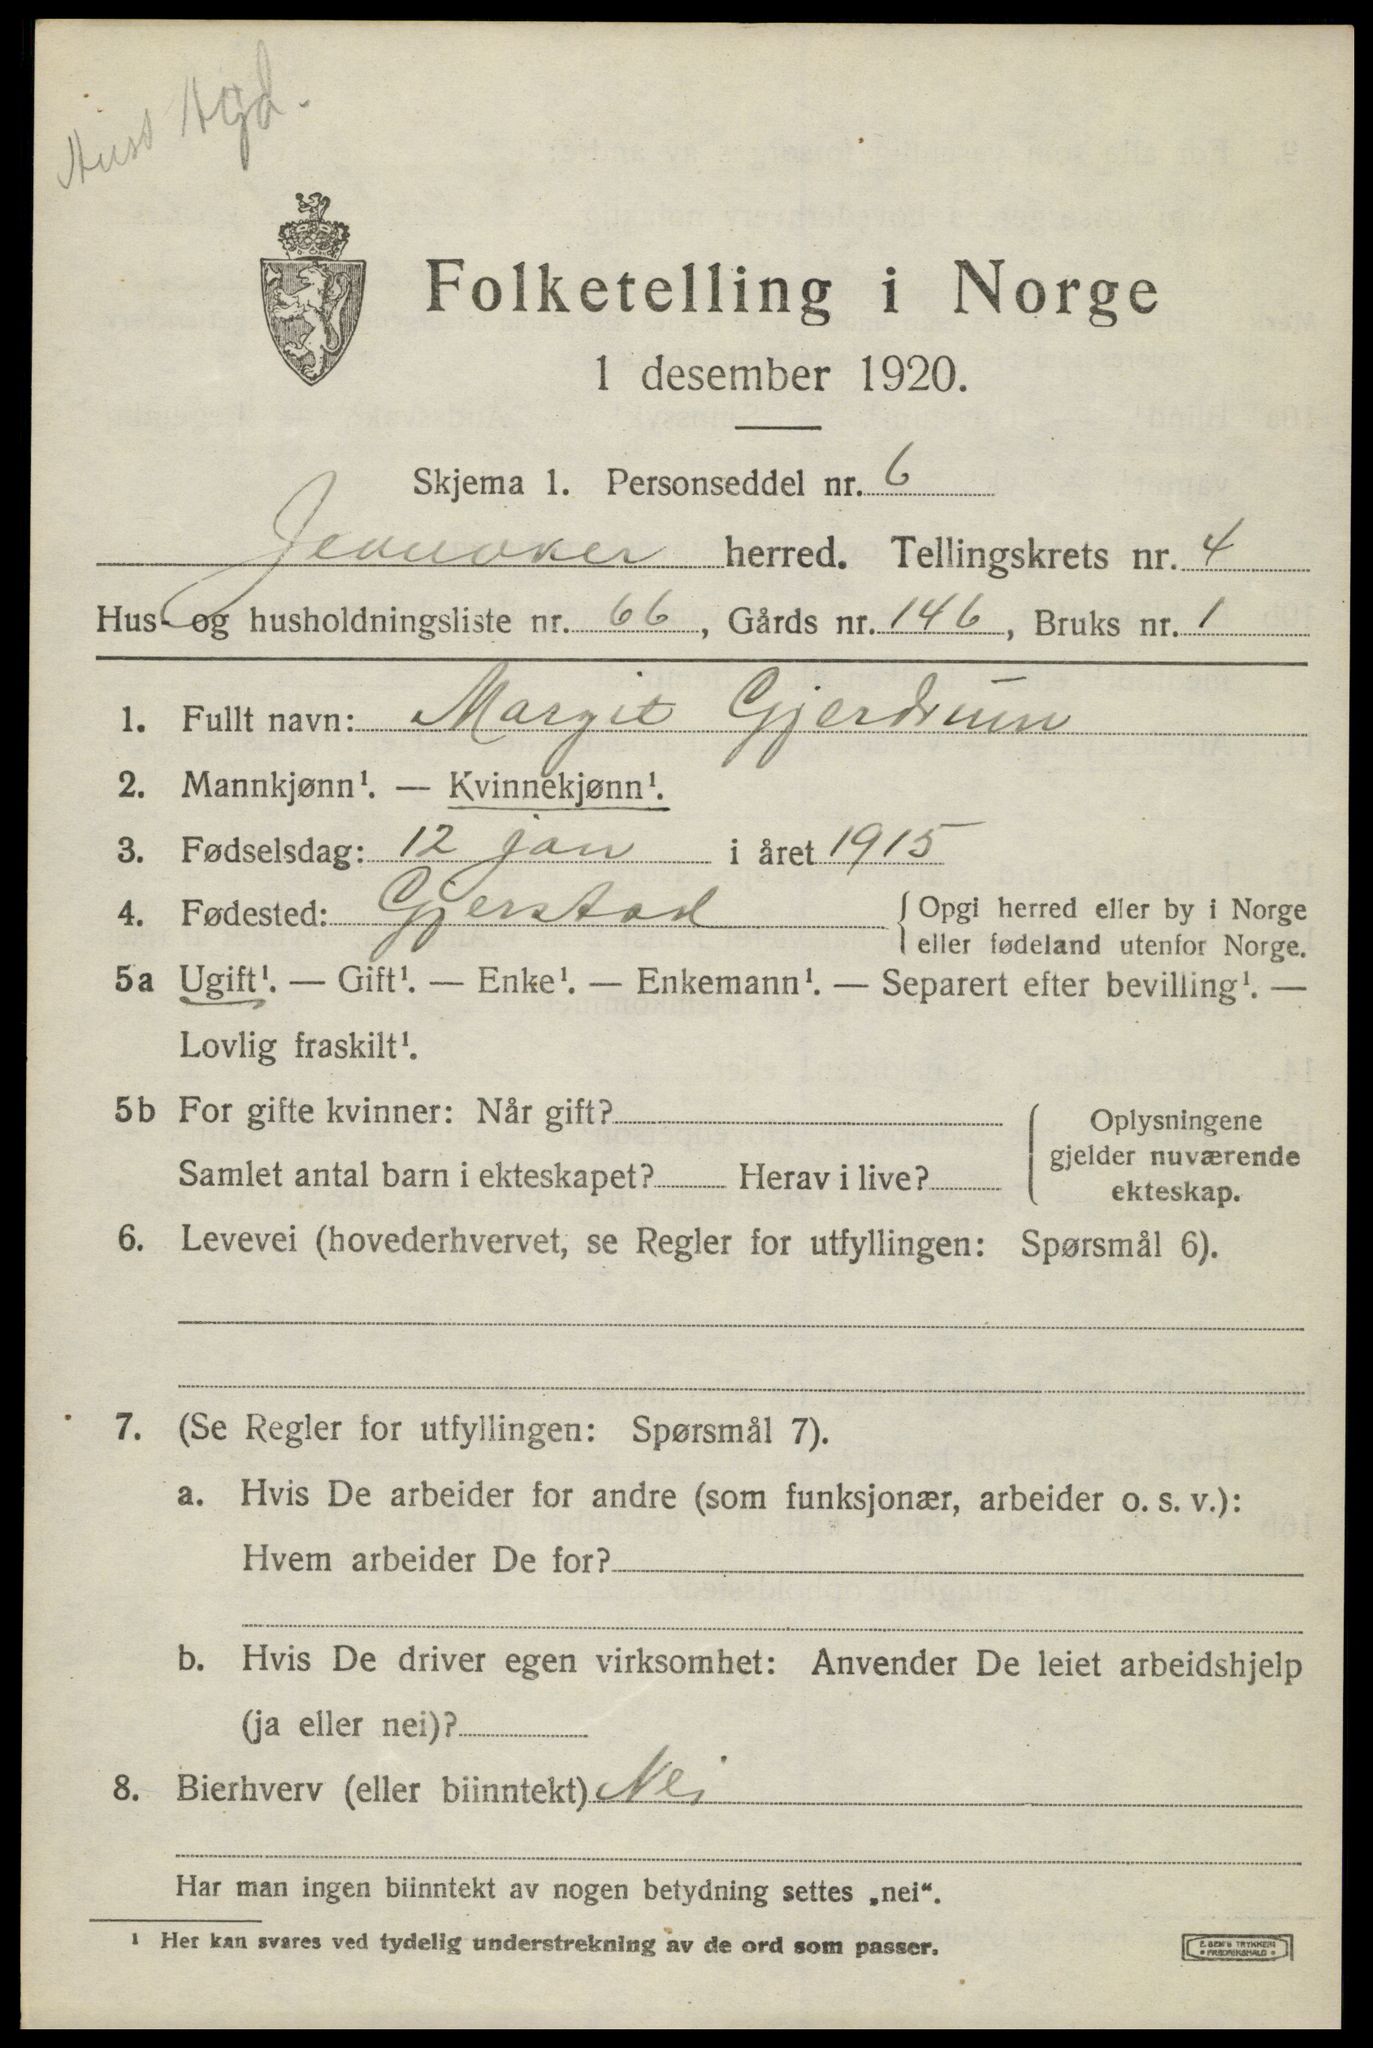 Aust Agd.
Folketelling i Norge
1 desember 1920.
Skjema 1. Personseddel nr. 6
Jevnaker herred. Tellingskrets nr. 4
Hus- og husholdningsliste nr. 66, Gårds nr. 146, Bruks nr. 1
1. Fullt navn: Margit Gjerdrum
2. Mannkjønn¹. — Kvinnekjønn¹.
3. Fødselsdag: 12 jan i året 1915
4. Fødested: Gjerstad { Opgi herred eller by i Norge
eller fødeland utenfor Norge.
5a Ugift¹. — Gift¹. — Enke¹. — Enkemann¹. — Separert efter bevilling¹. —
Lovlig fraskilt¹.
5b For gifte kvinner: Når gift? { Oplysningene
gjelder nuværende
Samlet antal barn i ekteskapet? Herav i live?
ekteskap.
6. Levevei (hovederhvervet, se Regler for utfyllingen: Spørsmål 6).
7. (Se Regler for utfyllingen: Spørsmål 7).
a. Hvis De arbeider for andre (som funksjonær, arbeider o. s. v.):
Hvem arbeider De for?
b. Hvis De driver egen virksomhet: Anvender De leiet arbeidshjelp
(ja eller nei)?
8. Bierhverv (eller biinntekt) Nei
Har man ingen biinntekt av nogen betydning settes „nei“.
¹ Her kan svares ved tydelig understrekning av de ord som passer.
E. SEM'S TRYKKERI
• FREDRIKSHALD •